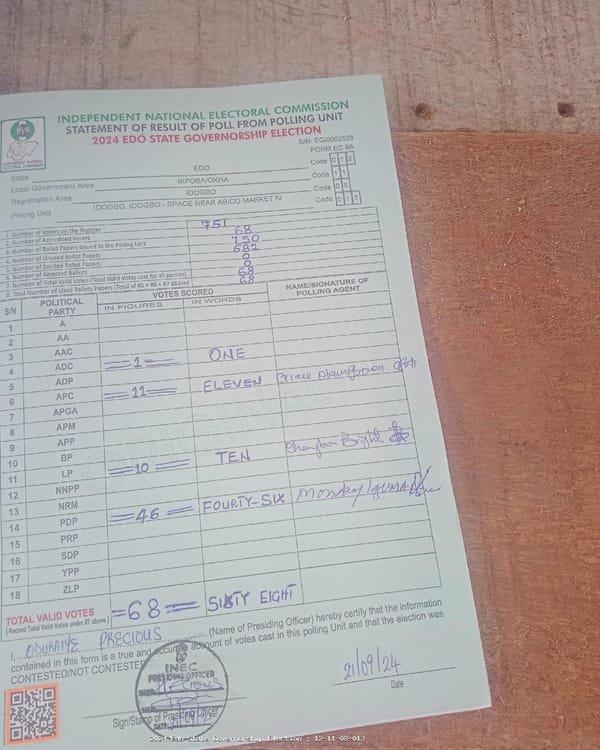 INDEPENDENT NATIONAL ELECTORAL COMMISSION
STATEMENT OF RESULT OF POLL FROM POLLING UNIT
2024 EDO STATE GOVERNORSHIP ELECTION
S/N: EG/0002528
FORM EC 8A
State EDO Code 0 1 2
Local Government Area IKPOBA/OKHA Code 1 1
Registration Area IDOGBO Code 0 8
Polling Unit IDOGBO, IDOGBO - SPACE NEAR ABICO MARKET IV Code 0 1 3
1. Number of Voters on the Register 751
2. Number of Accredited Voters 68
3. Number of Ballot Papers Issued to the Polling Unit 750
4. Number of Unused Ballot Papers 682
5. Number of Spoiled Ballot Papers 0
6. Number of Rejected Ballots 0
7. Number of Total Valid Votes (Total Valid Votes cast for all parties) 68
8. Total Number of Used Ballots Papers (Total of #5 + #6 + #7 above) 68
S/N POLITICAL PARTY VOTES SCORED NAME/SIGNATURE OF POLLING AGENT
IN FIGURES IN WORDS
1 A
2 AA
3 AAC
4 ADC =1= ONE
5 ADP
6 APC =11= ELEVEN
7 APGA
8 APM
9 APP
10 BP
11 LP =10= TEN Bright
12 NNPP
13 NRM
14 PDP =46= FOURTY-SIX Monday
15 PRP
16 SDP
17 YPP
18 ZLP
TOTAL VALID VOTES =68= SIXTY EIGHT
(Record Total Valid Votes under #7 above)
I, ODURAIYE PRECIOUS (Name of Presiding Officer) hereby certify that the information
contained in this form is a true and accurate account of votes cast in this polling Unit and that the election was
CONTESTED/NOT CONTESTED
INEC
PRESIDING OFFICER
21/09/24
Sign/Stamp of Presiding Officer Date
2024 Edo State Governorship Election : 12-11-08-013